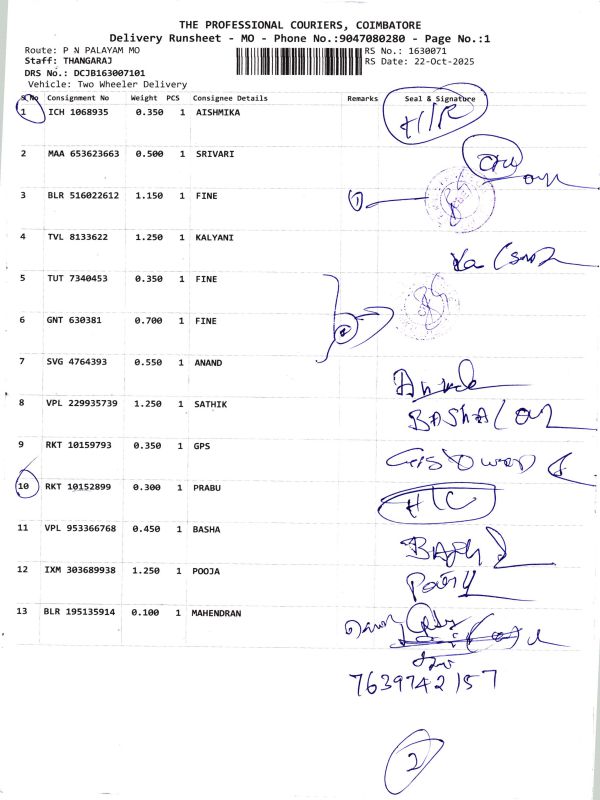 THE PROFESSIONAL COURIERS, COIMBATORE
Delivery Runsheet - MO - Phone No.:9047080280 - Page No.:1
Route: P N PALAYAM MO RS No.: 1630071
Staff: THANGARAJ RS Date: 22-Oct-2025
DRS No.: DCJB163007101
Vehicle: Two Wheeler Delivery
S.No Consignment No Weight PCS Consignee Details Remarks Seal & Signature
1 ICH 1068935 0.350 1 AISHMIKA
2 MAA 653623663 0.500 1 SRIVARI
3 BLR 516022612 1.150 1 FINE 1
4 TVL 8133622 1.250 1 KALYANI
5 TUT 7340453 0.350 1 FINE
6 GNT 630381 0.700 1 FINE
7 SVG 4764393 0.550 1 ANAND
8 VPL 229935739 1.250 1 SATHIK BASHA
9 RKT 10159793 0.350 1 GPS
10 RKT 10152899 0.300 1 PRABU
11 VPL 953366768 0.450 1 BASHA
12 IXM 303689938 1.250 1 POOJA
13 BLR 195135914 0.100 1 MAHENDRAN
7639742157
2